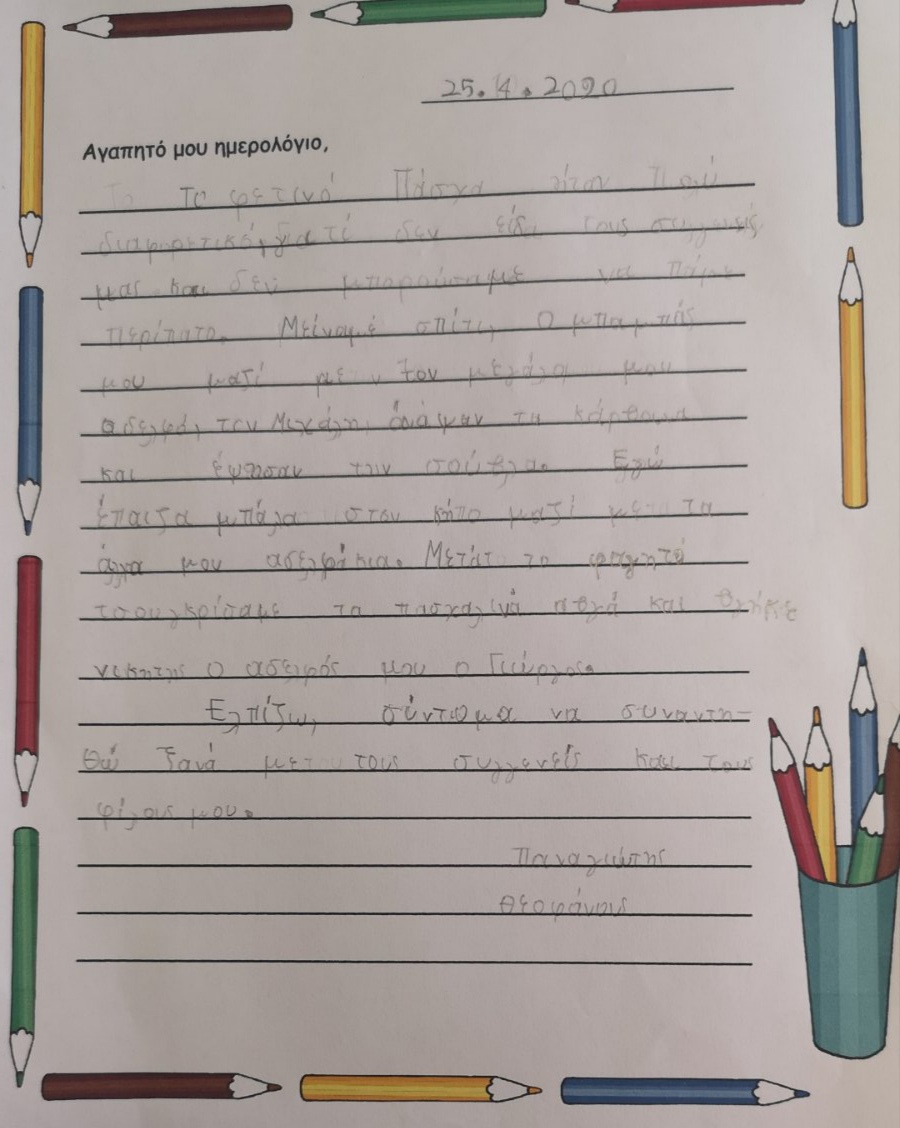 25.4.2020
Αγαπητό μου ημερολόγιο,
Το φετινό Πάσχα ήταν πολύ
διαφορετικό, γιατί δεν είδα τους συγγενείς
μας και δεν μπορούσαμε να πάμε
περίπατο. Μείναμε σπίτι, Ο μπαμπάς
μου μαζί με τον μεγάλο μου
αδελφό, τον Μιχάλη, άναψαν τα κάρβουνα
και έψησαν την σούβλα. Εγώ
έπαιζα μπάλα στον κήπο μαζί με τα
άλλα μου αδελφάκια. Μετά το φαγητό
τσουγκρίσαμε τα πασχαλινά αβγά και βγήκε
νικητής ο αδελφός μου ο Γιώργος.
Ελπίζω, σύντομα να συναντη-
θώ ξανά με τους συγγενείς και τους
φίλους μου.
Παναγιώτης
Θεοφάνους